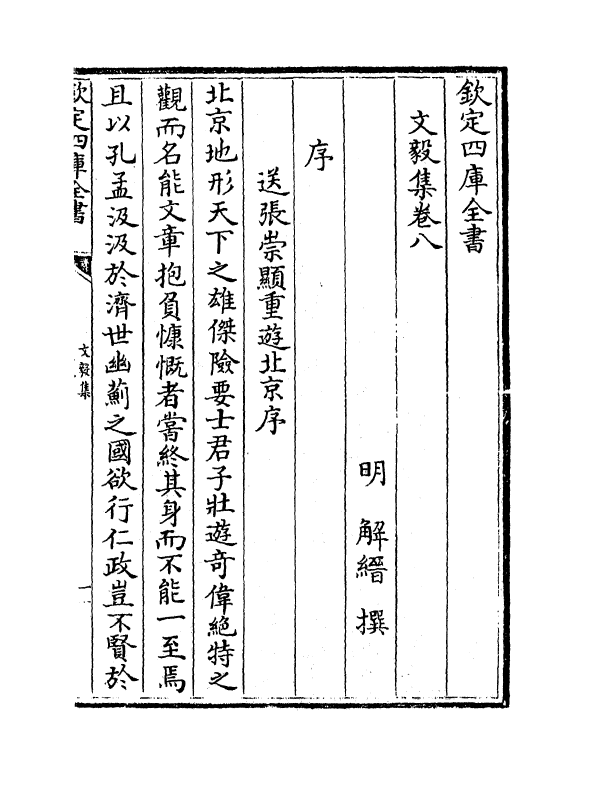 欽定四庫全書
文毅集卷八
明 解縉 撰
序
送張崇顯重遊北京序
北京地形天下之雄傑險要士君子壯遊竒偉絶特之
觀而名能文章抱負慷慨者當終其身而不能一至焉
且以孔孟汲汲於濟世幽薊之國欲行仁政豈不賢於
欽定四庫全書
文毅集
一